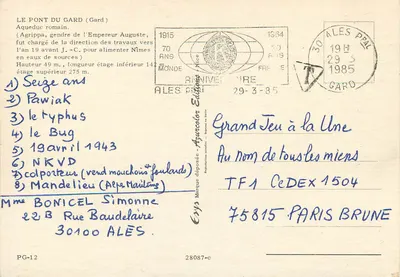 LE PONT DU GARD (Gard)
Aqueduc romain.
(Agrippa, gendre de l'Empereur Auguste,
fut chargé de la direction des travaux vers
l'an 19 avant J.-C. pour alimenter Nîmes
en eaux de sources)
Hauteur 49 m., longueur étage inférieur 142
étage supérieur 275 m.
1915 1984
70 ANS
MONDE
ANNIVERSAIRE
ALES PPAL 29-3-85
30 ALES PPAL
19H
29-3
1985
GARD
T
1) Seize ans
2) Pawiak
3) le typhus
4) le Bug
5) 19 avril 1943
6) NKVD
7) colporteur (vend mouchoirs foulards)
8) Mandelieu (Alpes Maritimes)
Mme BONICEL Simonne
22B Rue Baudelaire
30100 ALÈS
Marque disponible - Agracolor Editions
Grand Jeu à la Une
Au nom de tous les miens
TF1 CeDEX 1504
75815 PARIS BRUNE
PG-12
28087-c